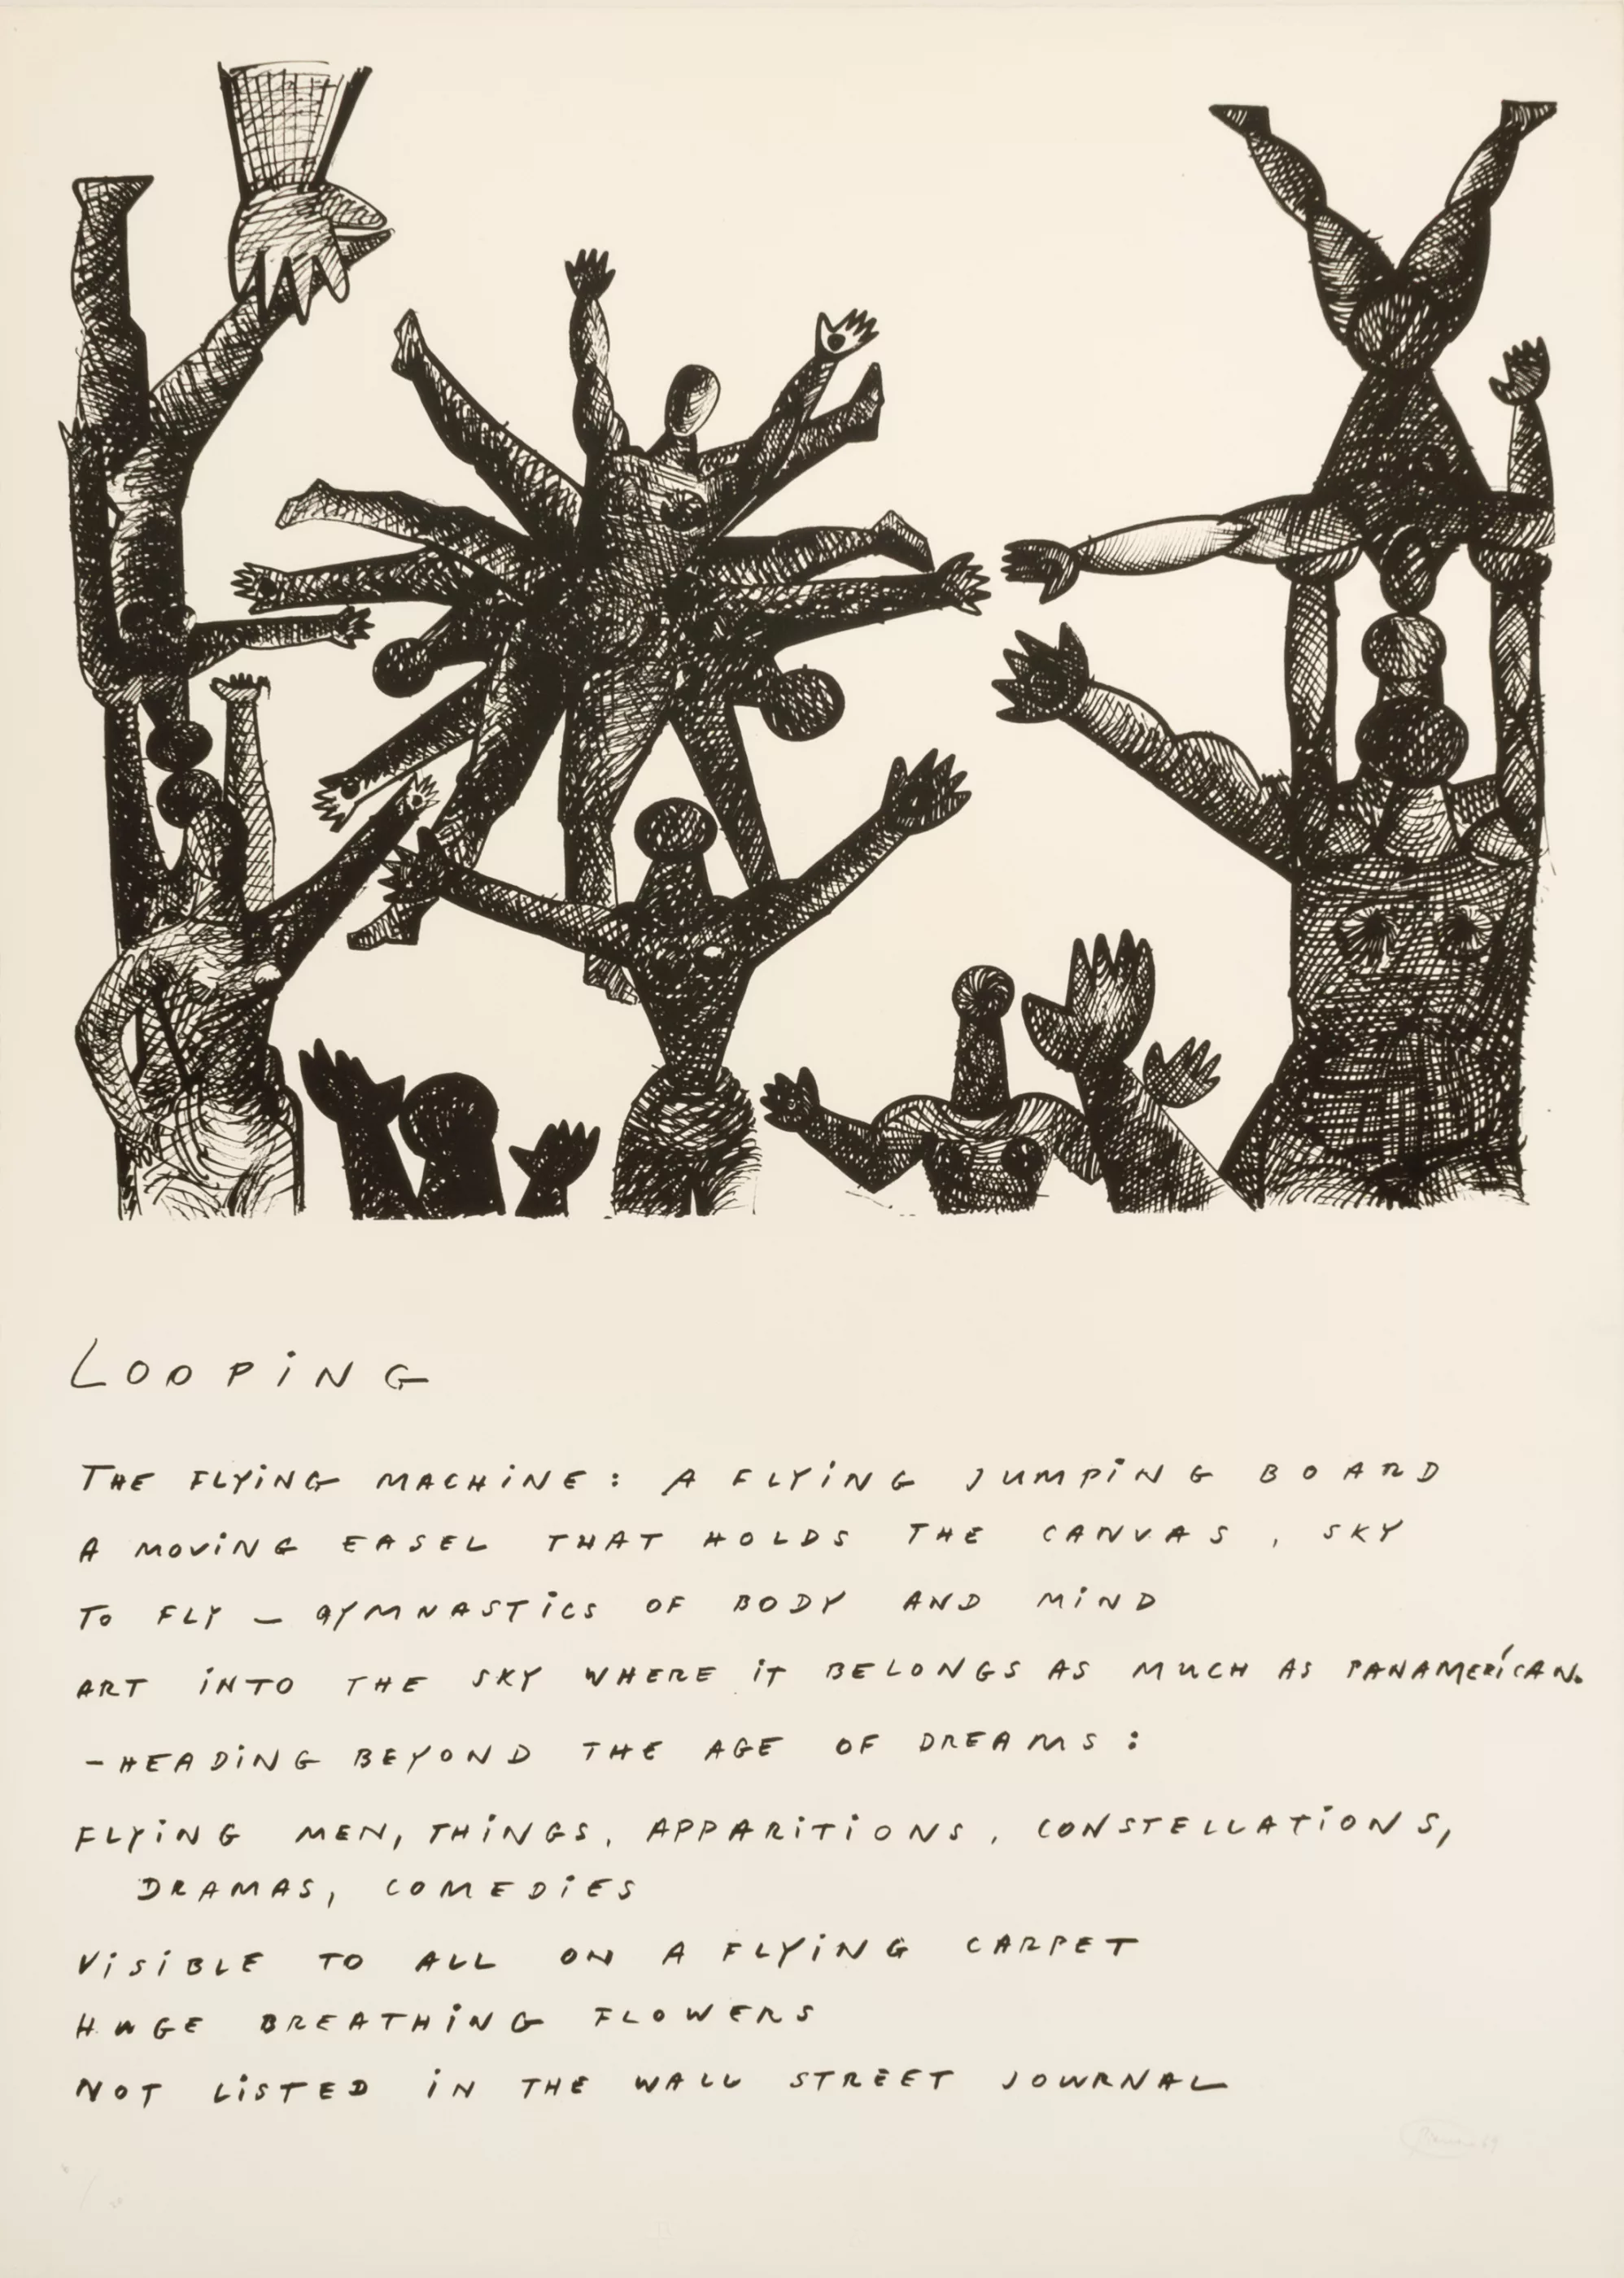 LOOPiNG
THE FLYiNG MACHiNE: A FLYiNG JUMPiNG BOARD
A MOViNG EASEL THAT HOLDS THE CANVAS, SKY
TO FLY – GYMNASTiCS OF BODY AND MiND
ART iNTO THE SKY WHERE iT BELONGS AS MUCH AS PANAMERiCAN.
– HEADiNG BEYOND THE AGE OF DREAMS:
FLYiNG MEN, THiNGS, APPARiTiONS, CONSTELLATiONS,
DRAMAS, COMEDiES
ViSiBLE TO ALL ON A FLYiNG CARPET
HUGE BREATHiNG FLOWERS
NOT LiSTED iN THE WALL STREET JOURNAL